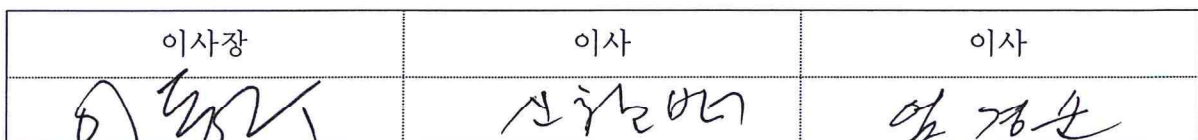 이사장 이사 이사
신철범 엄경순